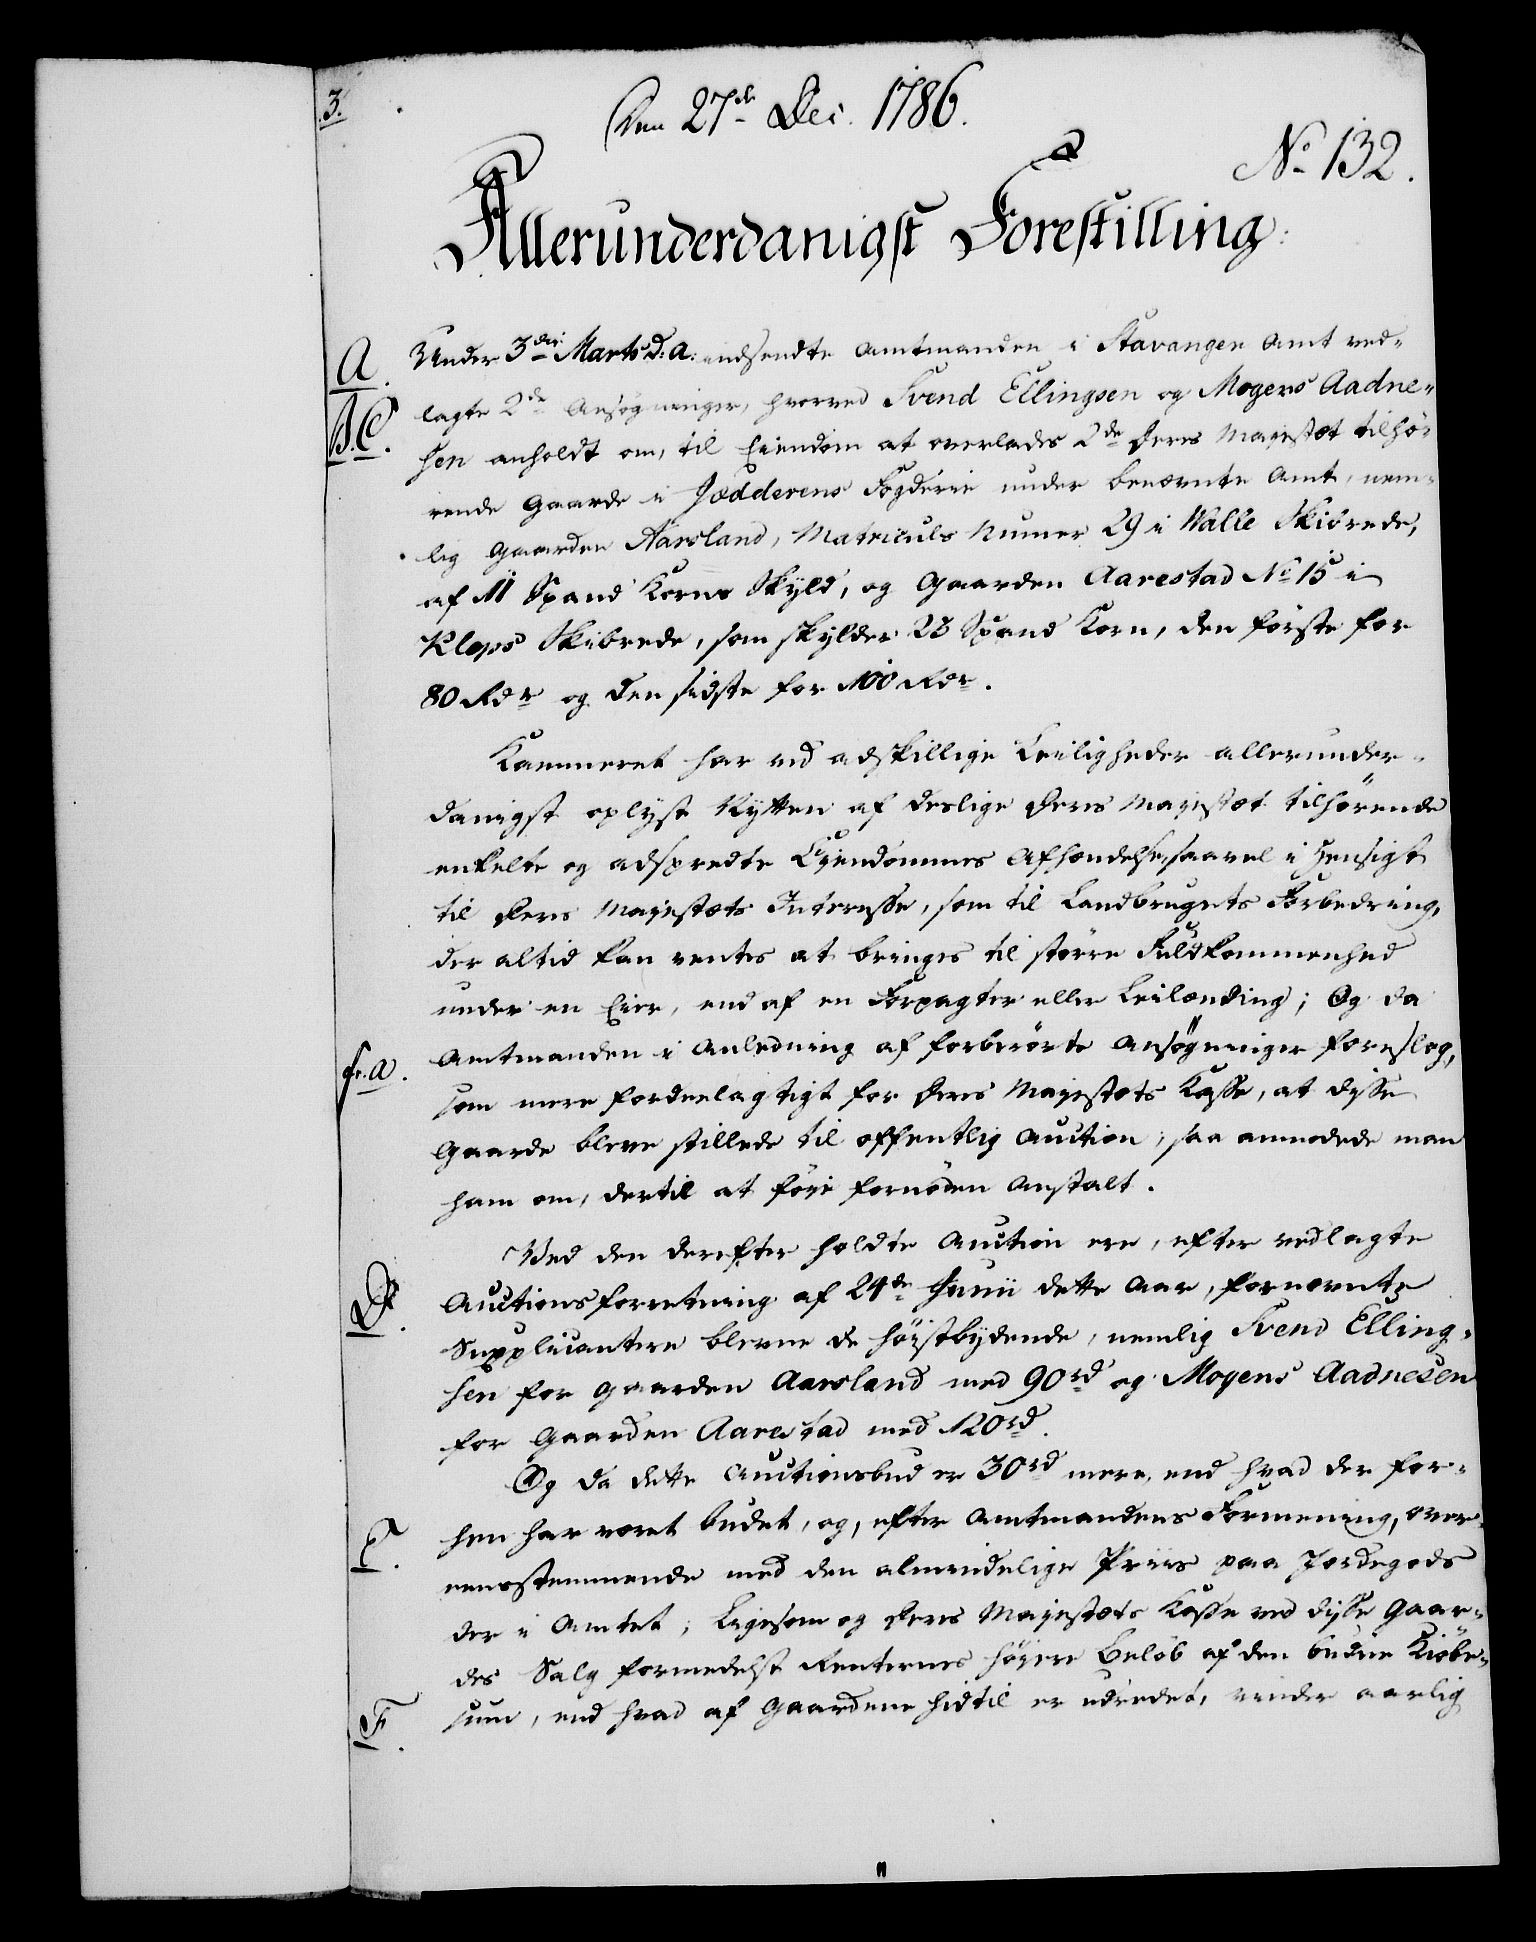 3.
Den 27de Dec. 1786.
No 132.
Allerunderdanigst Forestilling:
A.
Under 3die Marts d: a: indsendte Amtmanden i Stavanger Amt ved-
B. C.
lagte 2de Ansøgninger, hvorved Svend Ellingsen og Mogens Aadne-
sen anholdt om, til Eiendom at overlades 2de Deres Majestæt tilhø-
rende Gaarde i Jædderens Fogderie under benævnte Amt, nem-
lig Gaarden Aarsland, Matriculs Numer 29 i Walle Skibrede,
af 11 Spand Korns Skyld, og Gaarden Aarestad No 15 i
Kleps Skibrede, som skylder 23 Spand Korn, den første for
80 Rdr og den sidste for 100 Rdr.
Kammeret har ved adskillige Leiligheder allerunder-
danigst oplyst Nytten af deslige Deres Majestæt tilhørende
enkelte og adspredte Ejendommes Afhændelse, saavel i Hensigt
til Deres Majestæts Interesse, som til Landbrugets Forbedring,
der altid kan ventes at bringes til større Fuldkommenhed
under en Eier, end af en Forpagter eller Leilænding; Og da
fr. A.
Amtmanden i Anledning af forberørte Ansøgninger foreslog,
som mere fordeelagtigt for Deres Majestæts Kasse, at disse
Gaarde bleve stillede til offentlig Auction, saa anmodede man
ham om, dertil at føye fornøden Anstalt.
Ved den derefter holdte Auction ere, efter vedlagte
D.
Auctionsforretning af 24de Junii dette Aar, fornævnte
Supplicantere blevne de høistbydende, nemlig Svend Elling-
sen for Gaarden Aarsland med 90 rd og Mogens Aadnesen
for Gaarden Aarestad med 120 rd.
Og da dette Auctionsbud er 30 rd mere, end hvad der for-
E.
hen har været budet, og, efter Amtmandens Formening, over-
eensstemmende med den almindelige Priis paa Jordegods
der i Amtet; Ligesom og Deres Majestæts Kasse ved disse Gaar-
des Salg formedelst Renternes høyere Beløb af den budne Kiøbe-
F.
sum, end hvad af Gaardene hidtil er udredet, vinder aarlig